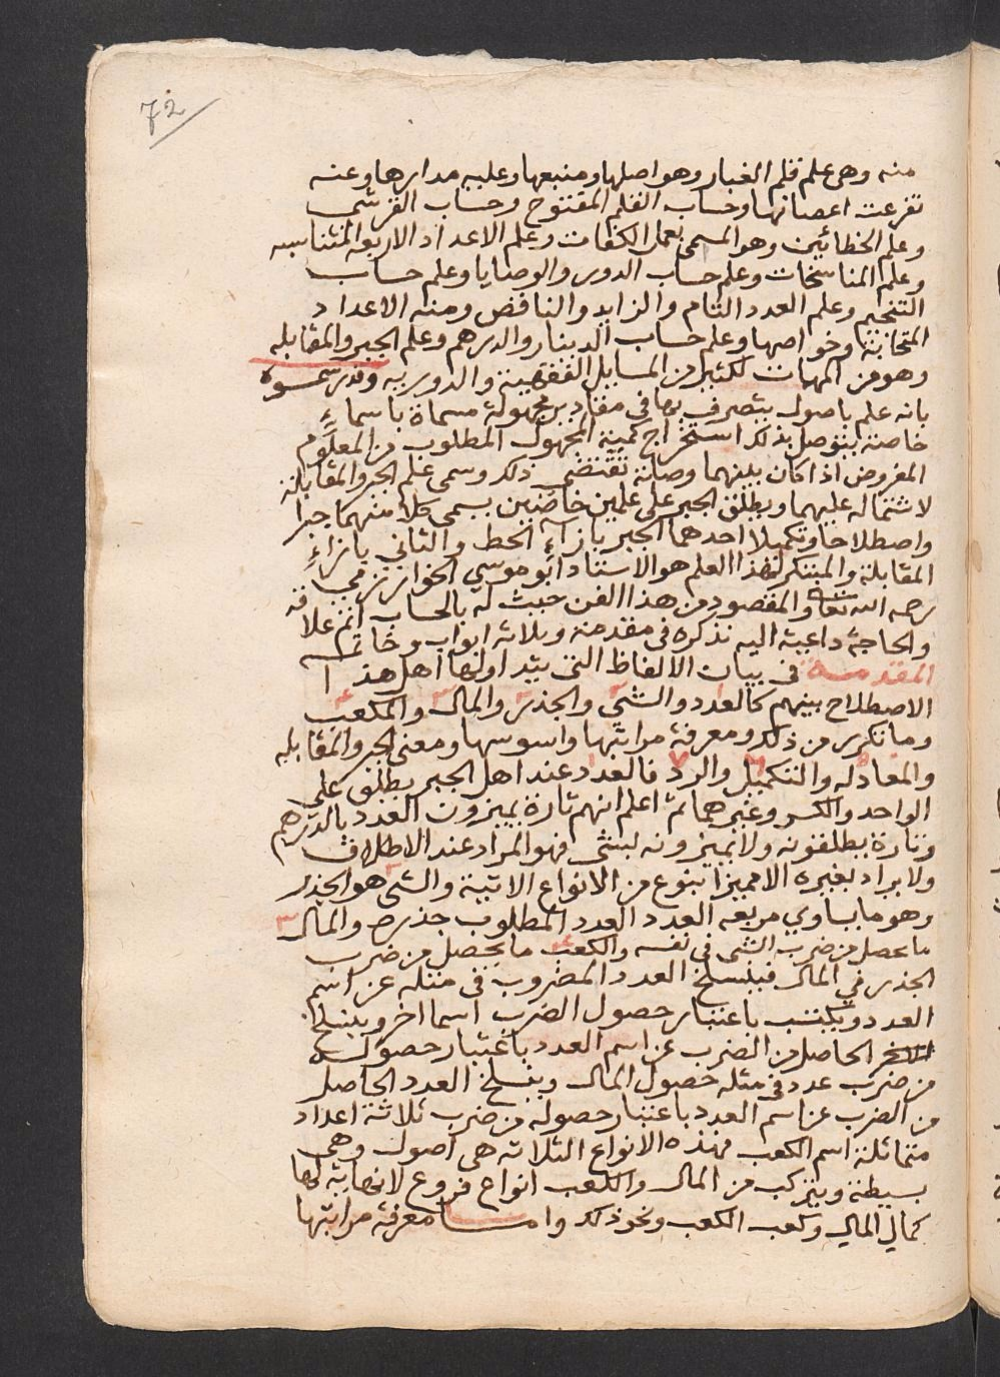 72
منه وهى علم قلم الغبار وهو اصلها ومنبعها وعليه مدارها وعنه
تفرعت اغصانها وحساب القلم المفتوح وحساب القرشى
وعلم الخطائين وهو المسمى بعمل الكفات وعلم الاعداد الاربعه المتناسبه
وعلم المناسخات وعلم حساب الدور والوصايا وعلم حساب
التنجيم وعلم العدد التام والزايد والناقص ومنه الاعداد
المتحابة وخواصها وعلم حساب الدينار والدرهم وعلم الجبر والمقابله
وهو من المهمات لكثير من المسايل الفقهية والدوريه وقد رسموه
بانه علم باصول يتصرف بها فى مقادير مجهولة مسماة باسماء
خاصة يتوصل بذلك استخراج كمية المجهول المطلوب من المعلوم
المفروض اذا كان بينهما وصلة تقتضى ذلك وسمى علم الجبر والمقابلة
لاشتماله عليهما ويطلق الجبر على علمين خاصين يسمى كلا منهما جبرا
واصطلاحا وتكميلا احدهما الجبر بازآء الحط والثاني بازاء
المقابلة والمبتكر لهذا العلم هو الاستاد ابو موسي الخوارزمي
رحمه الله تعالى والمقصود من هذا الفن حيث له بالحساب اتم علاقه
والحاجة داعية اليه نذكره فى مقدمة وثلاثه ابواب وخاتمه
المقدمة فى بيان الالفاظ التى يتداولها اهل هذا
الاصطلاح بينهم كالعدد والشي والجذر والمال والمكعب
وما تكرر من ذلك ومعرفة مراتبها واسوسها ومعنى الجبر والمقابله
والمعادله والتكميل والرد فالعدد عند اهل الجبر يطلق على
الواحد والكسر وغيرهما ثم اعلم انهم تارة يميزون العدد بالدرهم
وتارة يطلقونه ولا يميزونه بشى فهو المراد عند الاطلاق
ولا يراد بغيره الا مميزا بنوع من الانواع الاتية والشى هو الجذر
وهو ما يساوي مربعه العدد العدد المطلوب جذره والمال ٣
ما يحصل من ضرب الشى فى نفسه والكعب ما يحصل من ضرب
الجذر في المال فينسلخ العدد المضروب فى مثله عن اسم
العدد ويكتسب باعتبار حصول الضرب اسما اخر وينسلخ
الحاصل من الضرب عن اسم العدد باعتبار حصوله
من ضرب عدد فى مثله حصول المال وينسلخ العدد الحاصل
من الضرب عن اسم العدد باعتبار حصوله من ضرب ثلاثة اعداد
متماثلة اسم الكعب فهذه الانواع الثلاثه هى اصول وهى
بسيطة ويتركب من المال والكعب انواع فروع لانهاية لها
كمال المال وكعب الكعب ونحو ذلك واما معرفة مراتبها